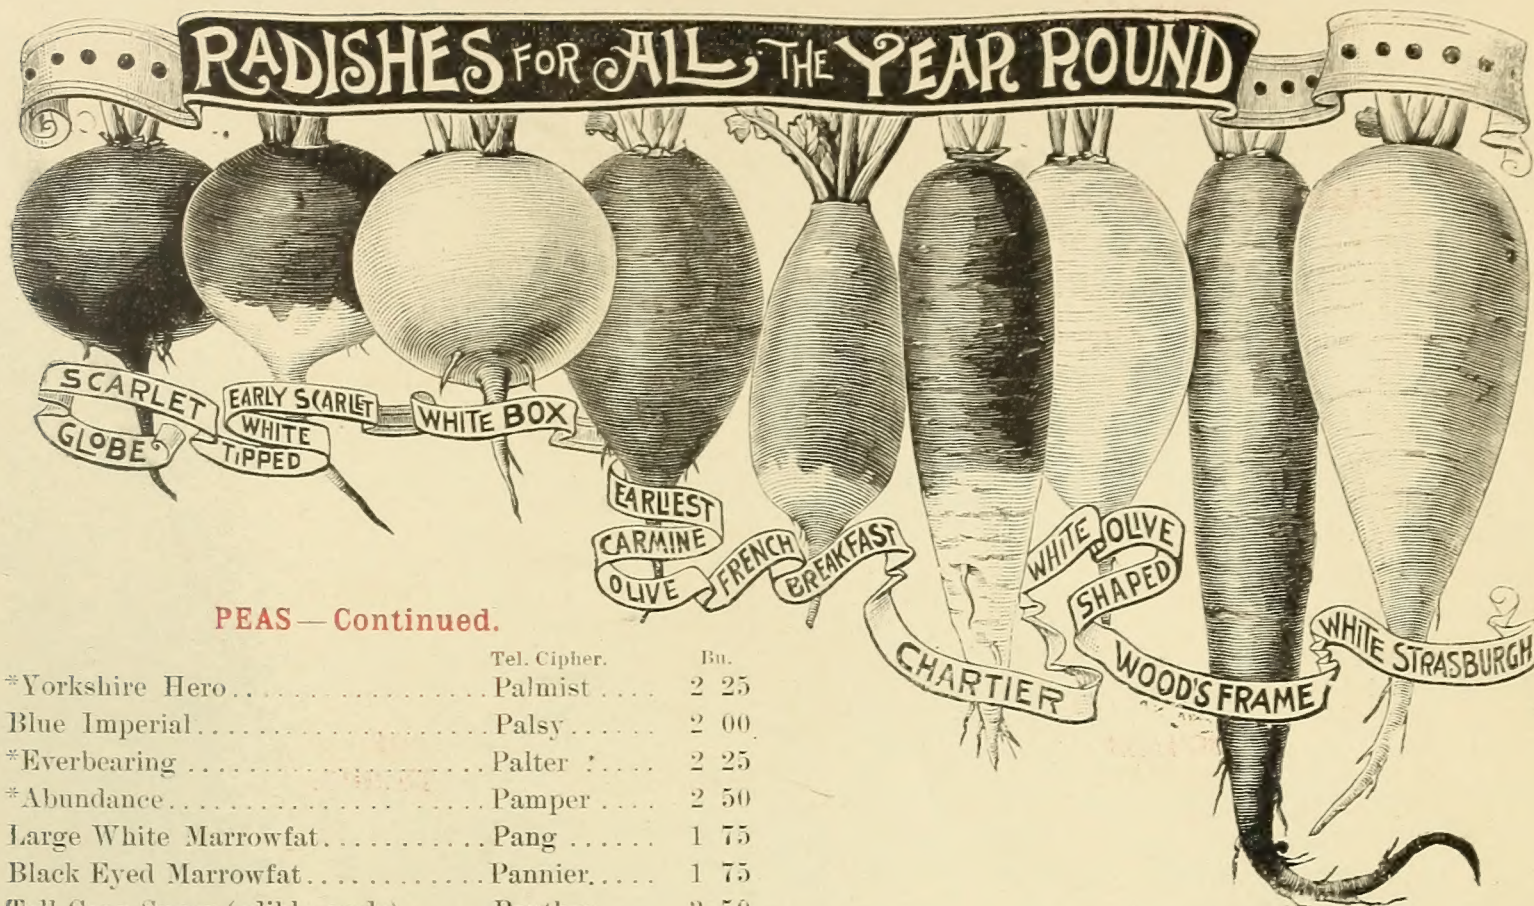 RADISHES FOR ALL THE YEAR ROUND
SCARLET
GLOBE
EARLY SCARLET
WHITE
TIPPED
WHITE BOX
EARLIEST
CARMINE
OLIVE
FRENCH
BREAKFAST
CHARTIER
WHITE OLIVE
SHAPED
WOOD'S FRAME
WHITE STRASBURGH
PEAS—Continued.
Tel. Cipher. Bu.
*Yorkshire Hero.................Palmist .... 2 25
Blue Imperial...................Palsy...... 2 00
*Everbearing ...................Palter :.... 2 25
*Abundance.....................Pamper ..... 2 50
Large White Marrowfat...........Pang ...... 1 75
Black Eyed Marrowfat............Pannier..... 1 75